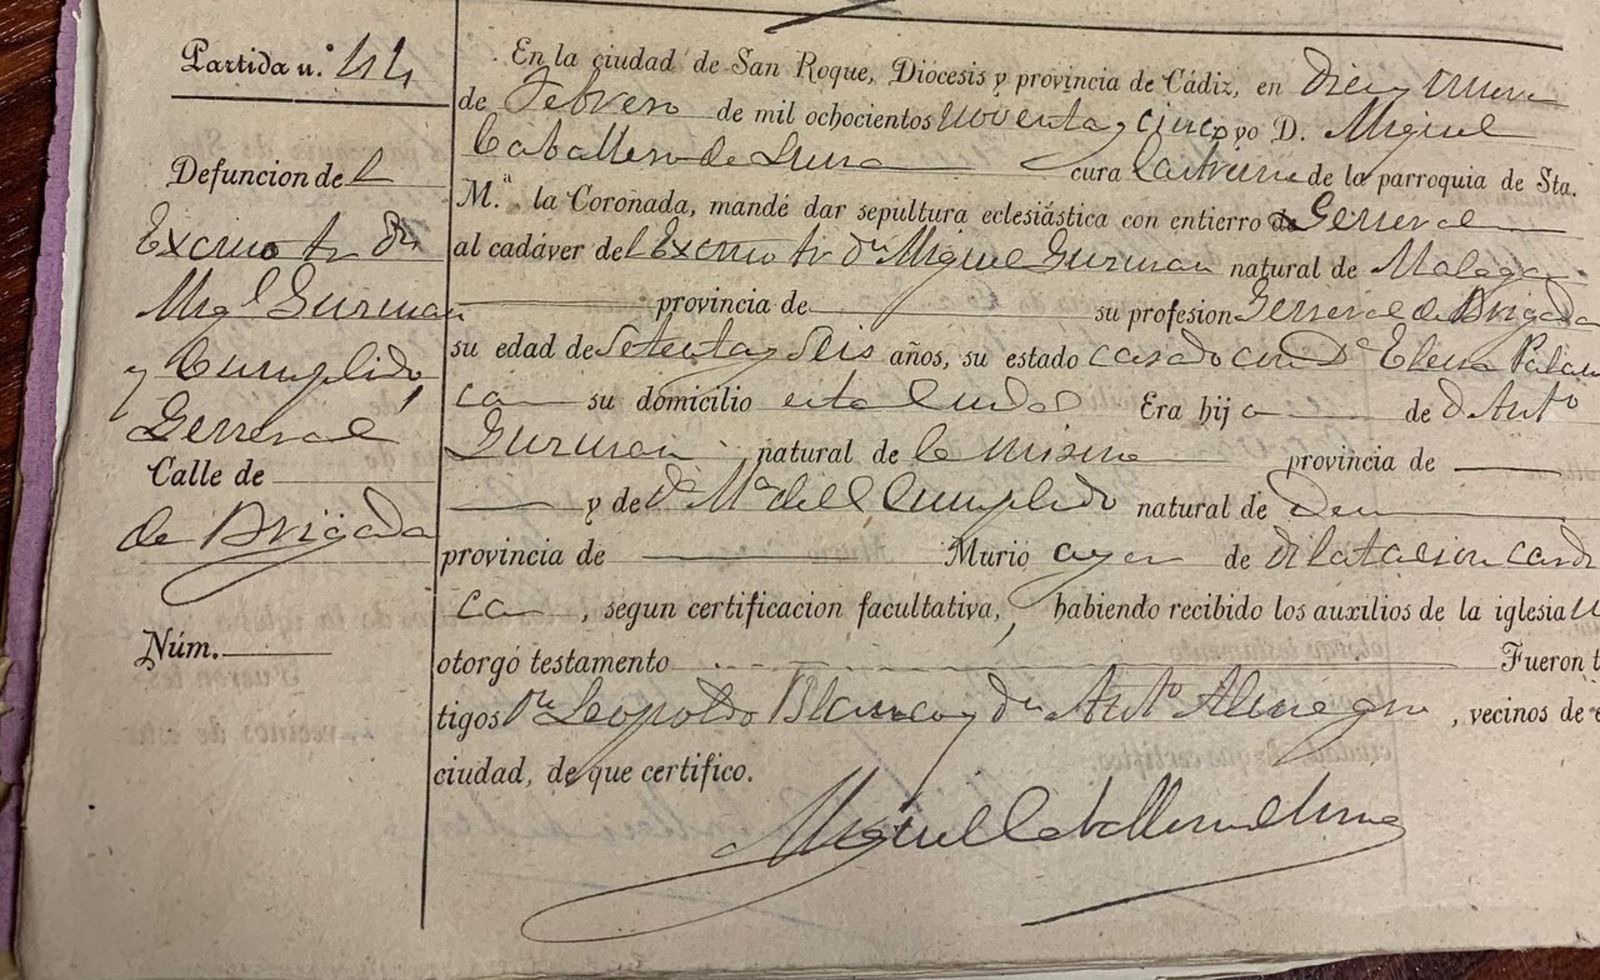 Partida n.° 44
Defuncion del
Excmo Sr Dn
Migl Gurman
y Cumplido,
General
Calle de
de Brigada
Núm.
En la ciudad de San Roque, Diócesis y provincia de Cádiz, en Diez y nueve
de Febrero de mil ochocientos noventa y cinco yo D. Miguel
Caballero de Luna cura Castrense de la parroquia de Sta.
M.ª la Coronada, mandé dar sepultura eclesiástica con entierro de General
al cadáver del Excmo Sr Dn Miguel Gurman natural de Malaga
provincia de su profesion General de Brigada
su edad de Setenta y Seis años, su estado casado con Dª Elena Palau
ca su domicilio esta Ciudad Era hijo de D Antº
Gurman natural de la misma provincia de
y de Dª Mª del C Cumplido natural de Idem
provincia de Murió ayer de dilatacion cardi
ca, segun certificacion facultativa, habiendo recibido los auxilios de la iglesia
otorgó testamento Fueron t
tigos Dn Leopoldo Blanco y Dn Antº Almagro, vecinos de e
ciudad, de que certifico.
Miguel Caballero de Luna